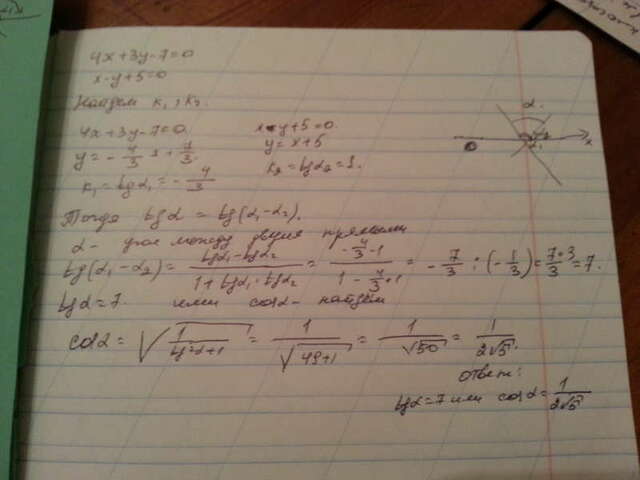 4x+3y-7=0
x-y+5=0
Найдем k₁, k₂.
4x+3y-7=0.
y = -4/3 x + 7/3.
k₁ = tgα₁ = -4/3
x-y+5=0.
y = x+5
k₂ = tgα₂ = 1.
α
x
Тогда tgα = tg(α₁-α₂).
α - угол между двумя прямыми
tg(α₁-α₂) = (tgα₁-tgα₂)/(1+tgα₁·tgα₂) = (-4/3-1)/(1-4/3·1) = -7/3 : (-1/3) = 7·3/3 = 7.
tgα = 7. или cosα - найдем
cosα = √(1/(tg²α+1)) = 1/√(49+1) = 1/√50 = 1/2√5.
ответ:
tgα = 7 или cosα = 1/2√5